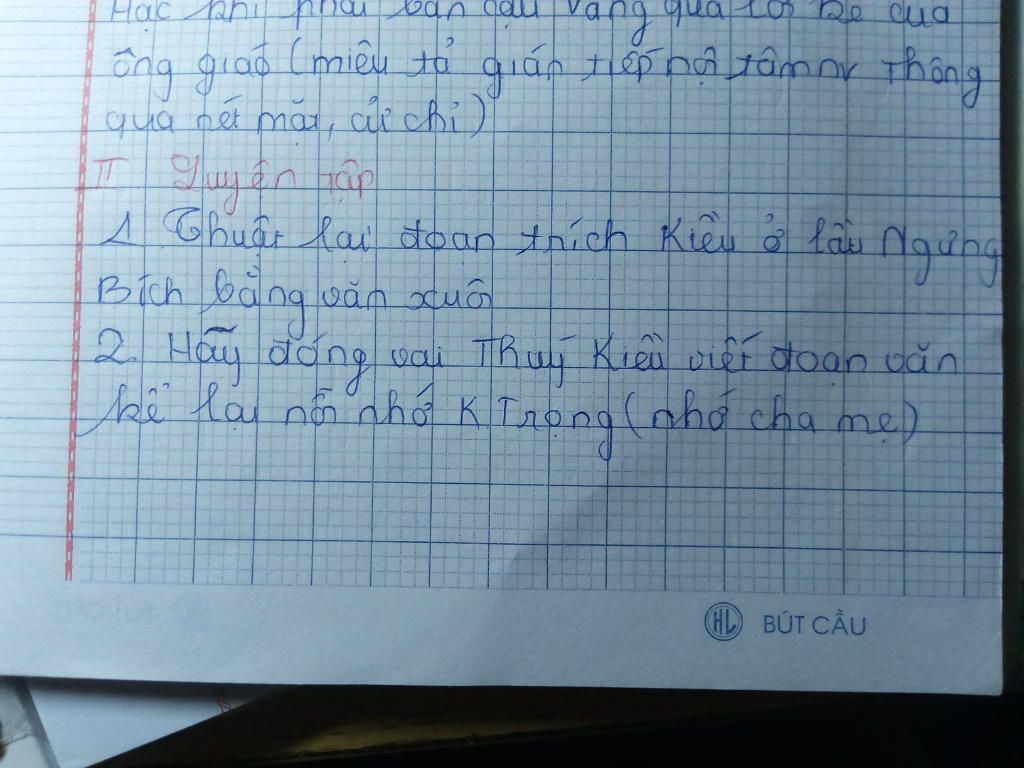 Hạc khi phải bán cậu vàng qua lời kể của
ông giáo (miêu tả gián tiếp nội tâm nv Thông
qua nét mặt, cử chỉ)
II Luyện tập
1 Thuật lại đoạn trích Kiều ở lầu Ngưng
Bích bằng văn xuôi
2. Hãy đóng vai Thuý Kiều viết đoạn văn
kể lại nỗi nhớ K Trọng (nhớ cha mẹ)
HL BÚT CẦU